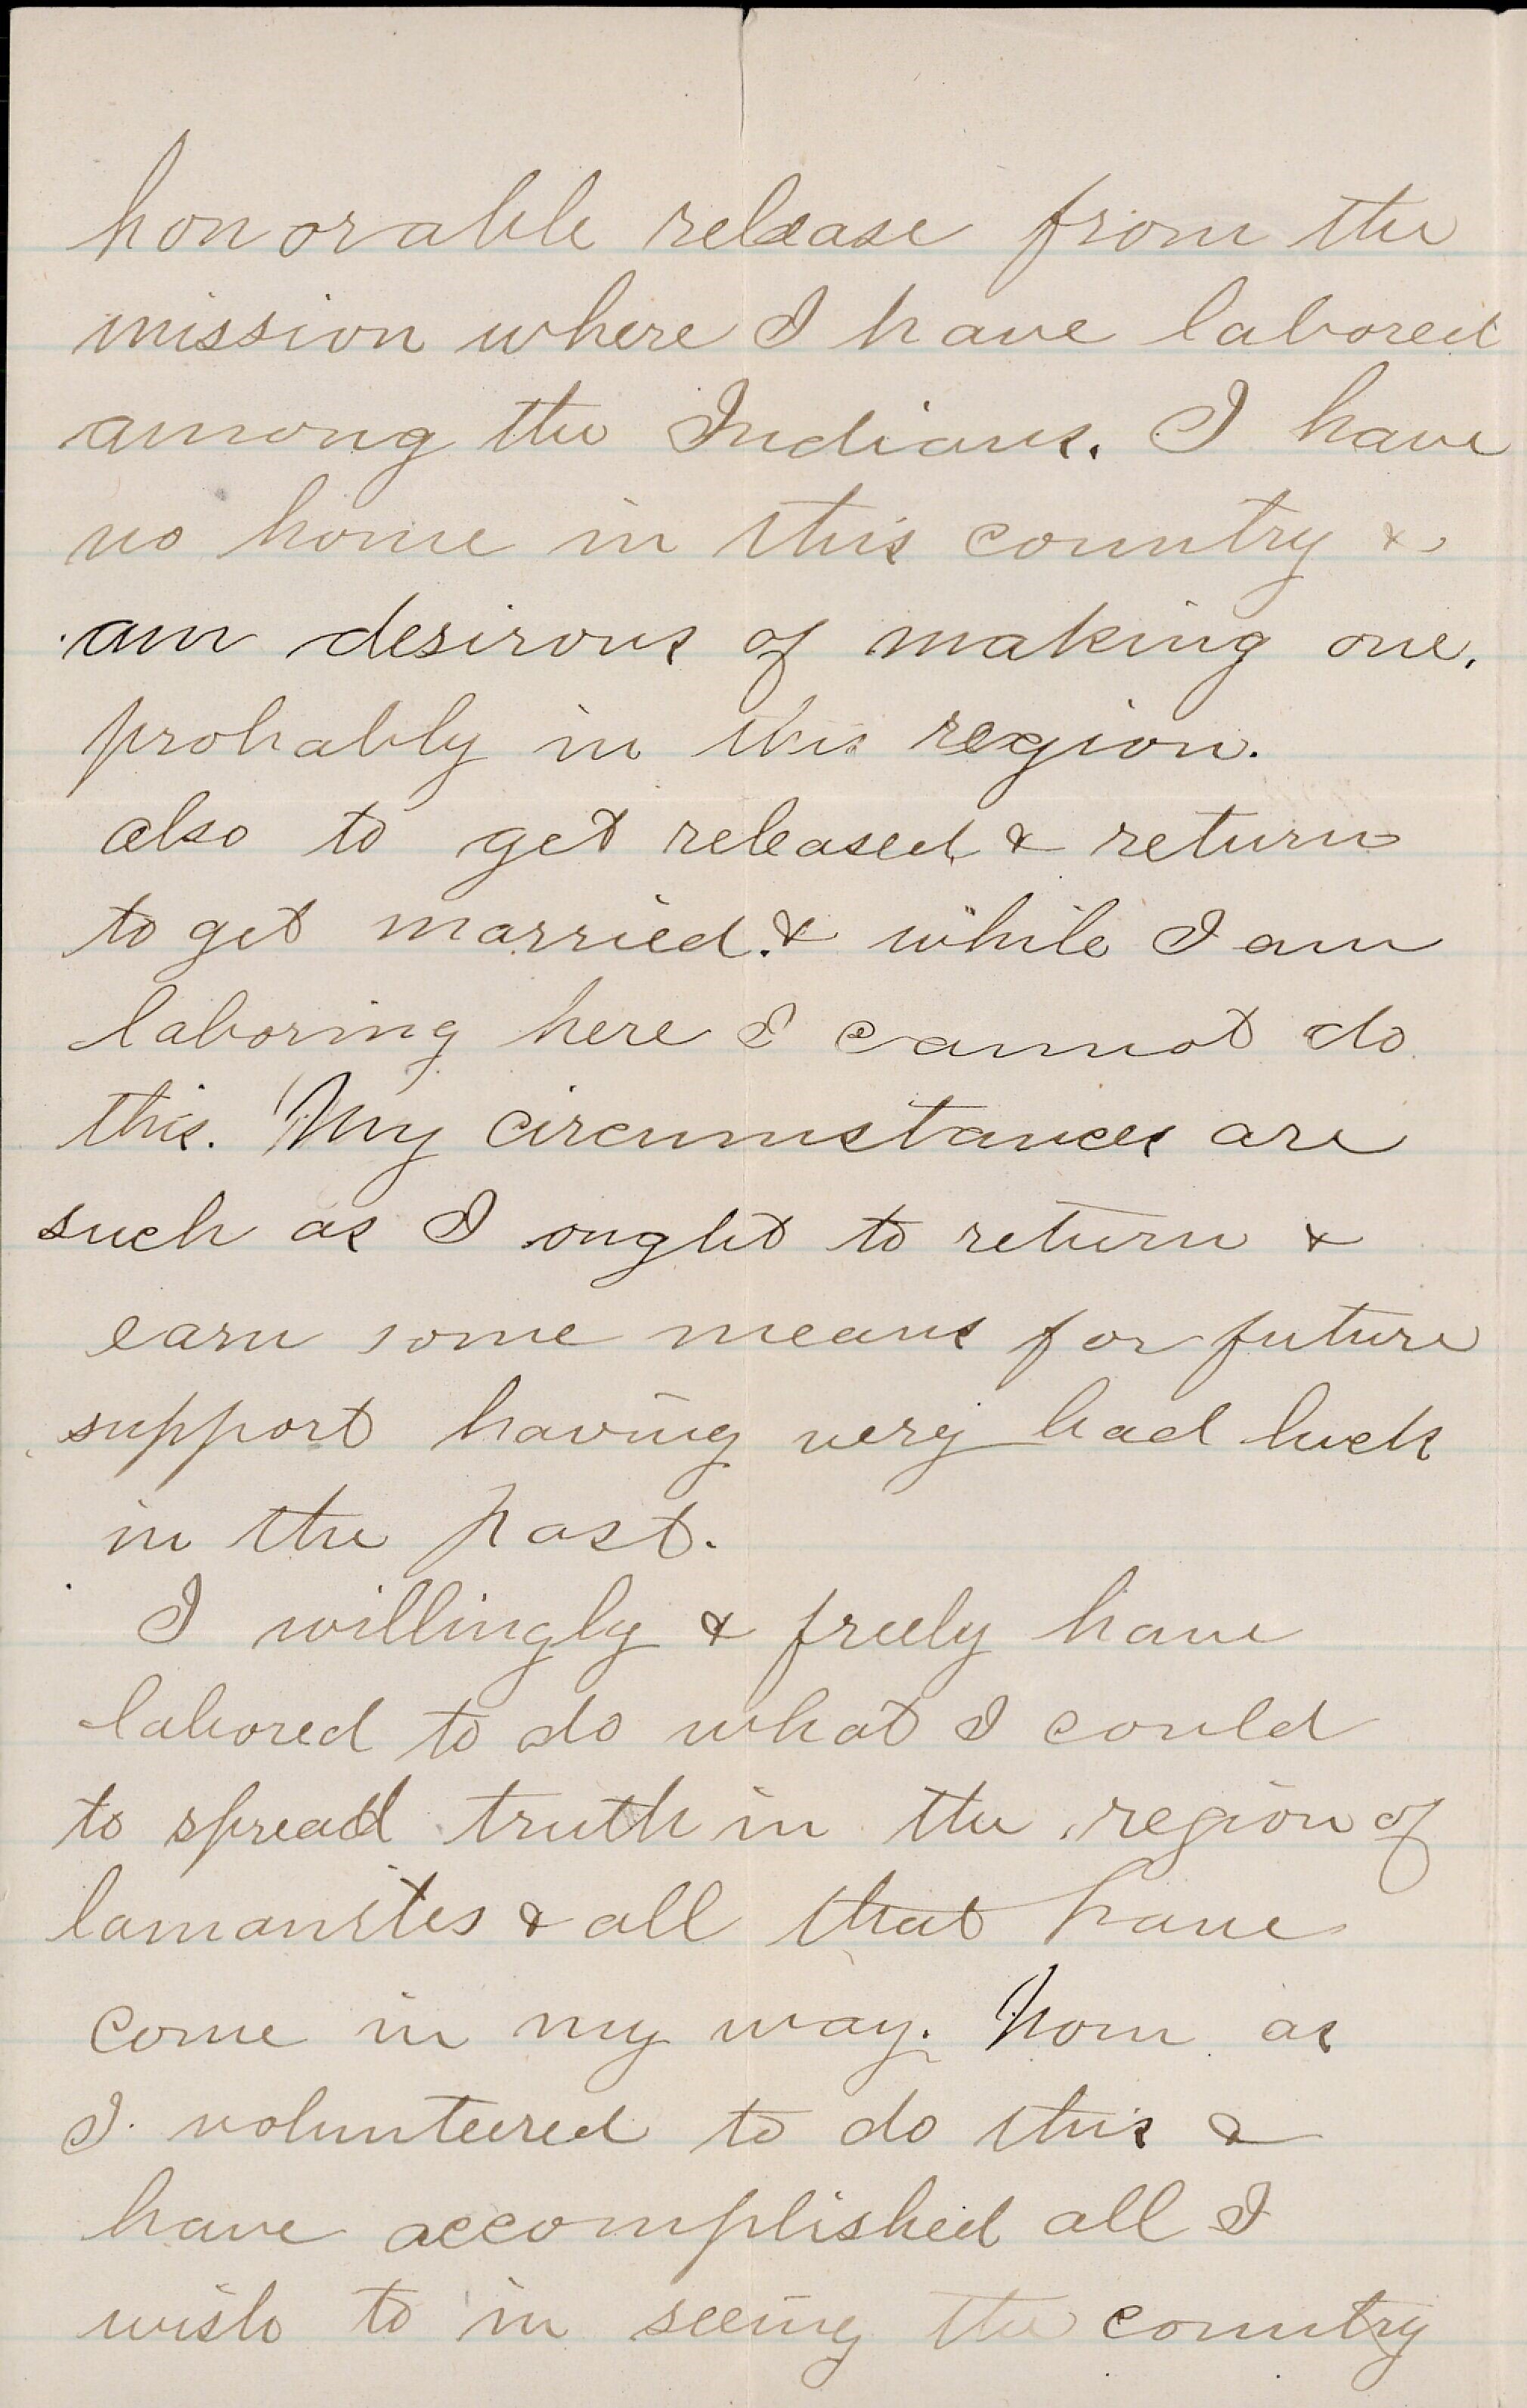 honorable release from the
mission where I have labored
among the Indians. I have
no home in this country &
am desirous of making one,
probably in this region.
also to get released & return
to get married. & while I am
laboring here I cannot do
this. My circumstances are
such as I ought to return &
earn some means for future
support having very bad luck
in the past.
I willingly & freely have
labored to do what I could
to spread truth in the region of
lamanites & all that have
come in my way. Now as
I volunteered to do this &
have accomplished all I
wish to in seeing the country